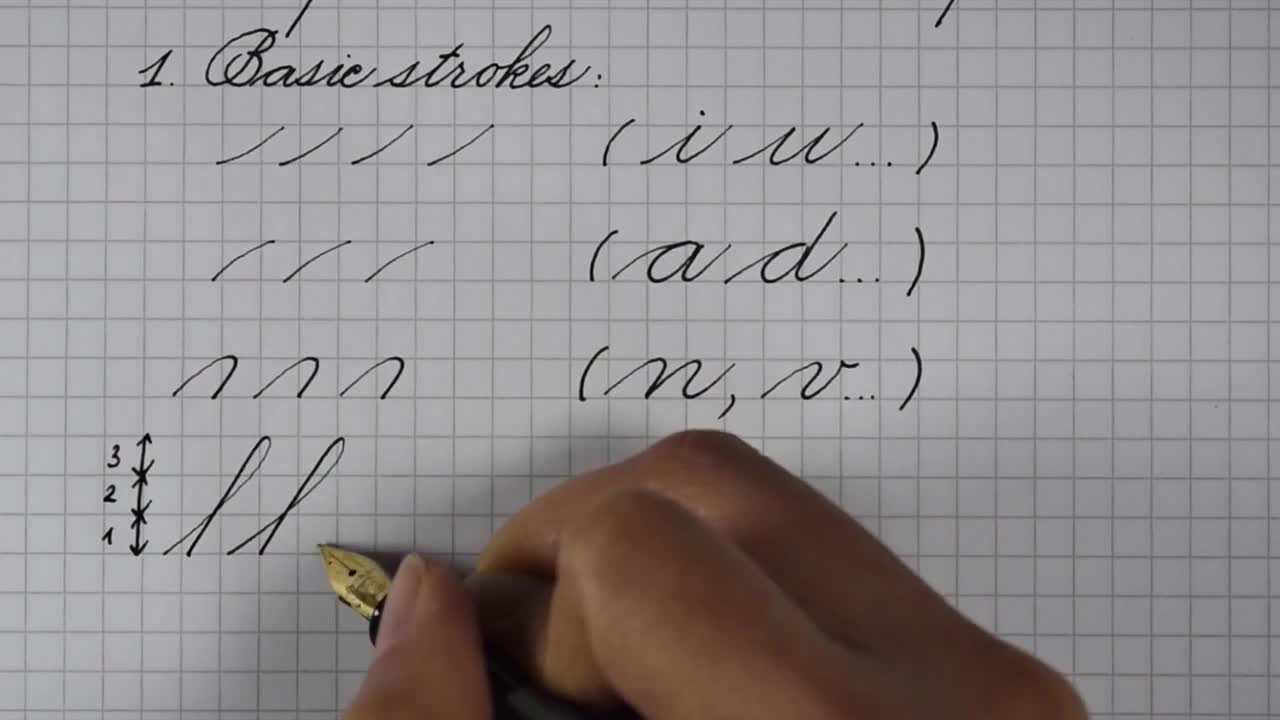 1. Basic strokes:
(i u...)
(a d...)
(n, v...)
3
2
1